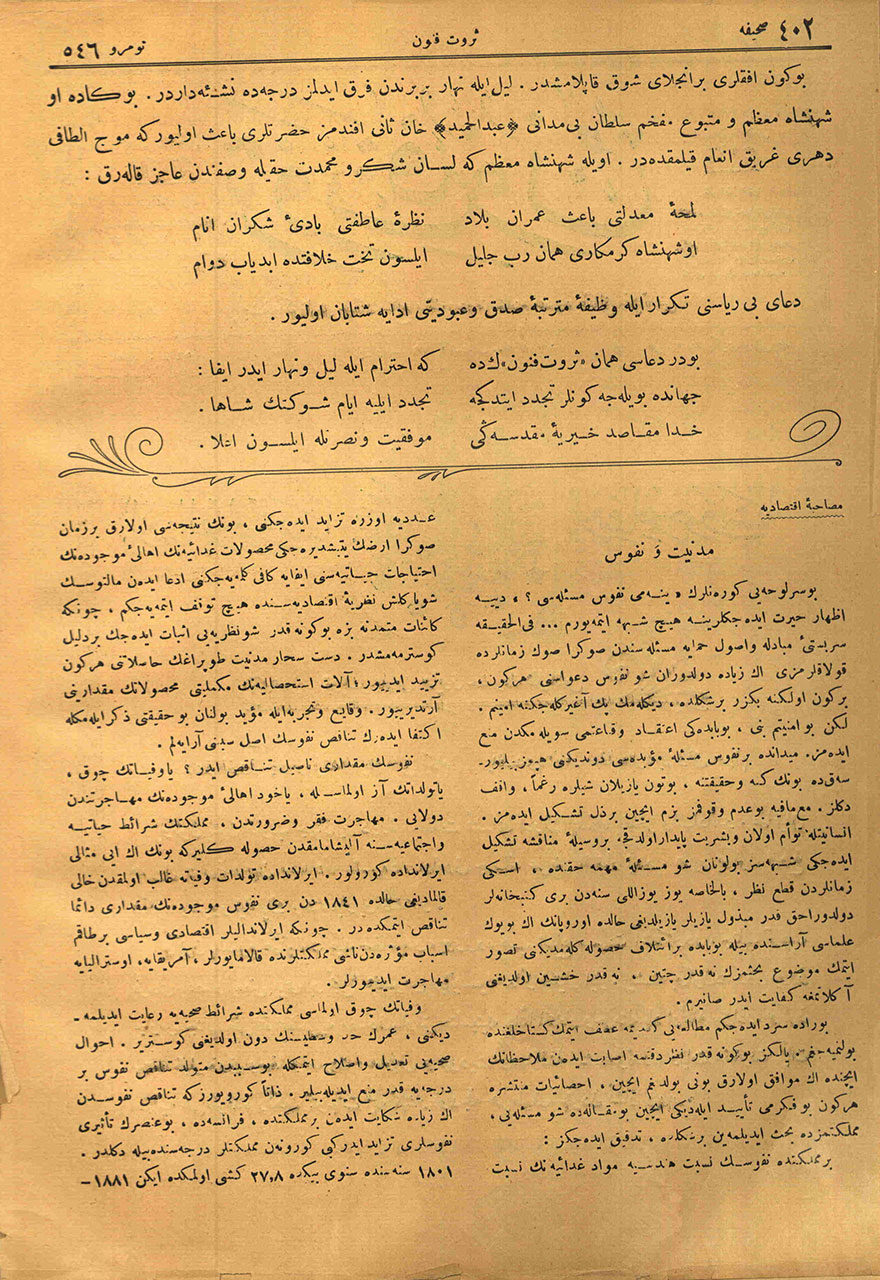 ٤٠٢ صحیفه
ثروت فنون
نومرو ٥٤٦
بوکون افقلری برانجلای شوق قاپلامشدر . لیل ایله نهار بربرندن فرق ایدلمز درجه‌ده نشئه‌داردر . بوکاده او
شهنشاه معظم و متبوع مفخم سلطان بی‌مدانی ﴿عبدالحمید﴾ خان ثانی افندمز حضرتلری باعث اولیورکه موج الطافی
دهری غریق انعام قیلمقده‌در . اویله شهنشاه معظم که لسان شکر و محمدت حقیله وصفندن عاجز قاله‌رق :
لمحهٔ معدلتی باعث عمران بلاد نظرهٔ عاطفتی بادیٔ شکران انام
اوشهنشاه کرمکاری همان رب جلیل ایلسون تخت خلافتده ابدیاب دوام
دعای بی ریاسنی تکرار ایله وظیفهٔ مترتبهٔ صدق وعبودیتی ادایه شتابان اولیور .
بودر دعاسی همان «ثروت فنون»ك ده که احترام ایله لیل ونهار ایدر ایفا :
جهانده بویله‌جه کونلر تجدد ایتدکجه تجدد ایلیه ایام شوکتك شاها .
خدا مقاصد خیریهٔ مقدسه‌کی موفقیت ونصرتله ایلسون اعلا .
مصاحبهٔ اقتصادیه
مدنیت و نفوس
بوسرلوحه‌یی کوره‌نلرك « ینه‌می نفوس مسئله‌سی ؟ » دییه
اظهار حیرت ایده‌جکلرینه هیچ شبهه ایتمه‌یورم ... فی‌الحقیقه
سربستیٔ مبادله واصول حمایه مسئله سندن صوکرا صوك زمانلرده
قولاقلرمزی اك زیاده دولدوران شو نفوس دعواسنی هرکون ،
برکون اولکنه بکزر برشکلده ، دیکله‌مك پك آغیر کله‌جکنه امینم .
لکن بو امنیتم بنی ، بوبابده‌کی اعتقاد وقناعتمی سویله مکدن منع
ایده‌مز. میدانده برنفوس مسئلهٔ مؤبده‌سی دوندیکنی هپمز بیلیورـ
سه‌ق‌ده بونك کنه وحقیقتنه ، بوتون یازیلان شیلره رغماً ، واقف
دکلز . مع‌مافیه بوعدم وقوفمز بزم ایچین برذل تشکیل ایده‌مز .
انسانیتله توأم اولان وبشریت پایدار اولدقجه بروسیلهٔ مناقشه تشکیل
ایده‌جکی شبهه‌سز بولونان شو مسئلهٔ مهمه حقنده ، اسکی
زمانلردن قطع نظر ، بالخاصه یوز یوزاللی سنه‌دن بری کتبخانه‌لر
دولدوراجق قدر مبذول یازیلر یازیلدیغی حالده اوروپانك اك بویوك
علماسی آراسنده بیله بوبابده برائتلاف حصوله کله‌مدیکنی تصور
ایتمك موضوع بحثمزك نه‌قدر چتین ، نه‌قدر خشین اولدیغنی
آکلاتمغه کفایت ایدر صانیرم .
بوراده سرد ایده‌جکم مطالعه‌یی کندیمه عطف ایتمك کستاخلغنده
بولنمیه‌جغم . یالکز بوکونه قدر نظردقتمه اصابت ایده‌ن ملاحظاتك
ایچنده اك موافق اولارق بونی بولدیغم ایچین ، احصائیات منتشره
هرکون بوفکرمی تأیید ایله‌دیکی ایچین بومقاله‌ده شو مسئله‌یی ،
مملکتمزده بحث ایدیلمه‌ین برشکلده ، تدقیق ایده‌جکز :
برمملکتده نفوسك نسبت هندسیه مواد غدائیه‌نك نسبت
عددیه اوزره تزاید ایده‌جکنی ، بونك نتیجه‌سی اولارق برزمان
صوکرا ارضك یتیشدیره‌جکی محصولات غدائیه‌نك اهالیٔ موجوده‌نك
احتیاجات حیاتیه‌سنی ایفایه کافی کله‌میه‌جکنی ادعا ایده‌ن مالتوسك
شویا کلش نظریهٔ اقتصادیه‌سنده هیچ توقف ایتمه‌یه‌جکم ، چونکه
کائنات متمدنه بزه بوکونه قدر شونظریه‌یی اثبات ایده‌جك بردلیل
کوسترمه‌مشدر . دست سحار مدنیت طوپراغك حاصلاتنی هرکون
تزیید ایدیور ؛ آلات استحصالیه‌نك مکملیتی محصولاتك مقدارینی
آرتدیریور . وقایع وتجربه‌ایله مؤید بولنان بوحقیقتی ذکرایله‌مکله
اکتفا ایده‌رك تناقص نفوسك اصل سببنی آرایه‌لم .
نفوسك مقداری ناصیل تناقص ایدر ؟ یاوفیاتك چوق ،
یاتولداتك آز اولماسیله ، یاخود اهالیٔ موجوده‌نك مهاجرتندن
دولایی . مهاجرت فقر وضرورتدن ، مملکتك شرائط حیاتیه
واجتماعیه‌سنه آلیشامامقدن حصوله کلیرکه بونك اك ایی مثالی
ایرلانداده کورولور . ایرلانداده تولدات وفیاته غالب اولمقدن خالی
قالمادیغی حالده ١٨٤١ دن بری نفوس موجوده‌نك مقداری دائما
تناقص ایتمکده‌در . چونکه ایرلاندالیلر اقتصادی وسیاسی برطاقم
اسباب مؤثره‌دن ناشی مملکتلرنده قالامایورلر ، آمریقایه ، اوسترالیایه
مهاجرت ایدیورلر .
وفیاتك چوق اولماسی مملکتده شرائط صحیه‌یه رعایت ایدیلمه‌ـ
دیکنی ، عمرك حد وسطیسنك دون اولدیغنی کوستریر . احوال
صحیه‌یی تعدیل واصلاح ایتمکله بوسببدن متولد تناقص نفوس بر
درجه‌یه قدر منع ایدیله‌بیلیر . ذاتاً کورویورزکه تناقص نفوسدن
اك زیاده شکایت ایده‌ن برمملکتده ، فرانسه‌ده ، بوعنصرك تأثیری
نفوسلری تزاید ایدرکبی کورونه‌ن مملکتلر درجه‌سنده‌بیله دکلدر .
١٨٠١ سنه‌سنده سنوی بیکده ٢٧,٨ کشی اولمکده ایکن ١٨٨١ –